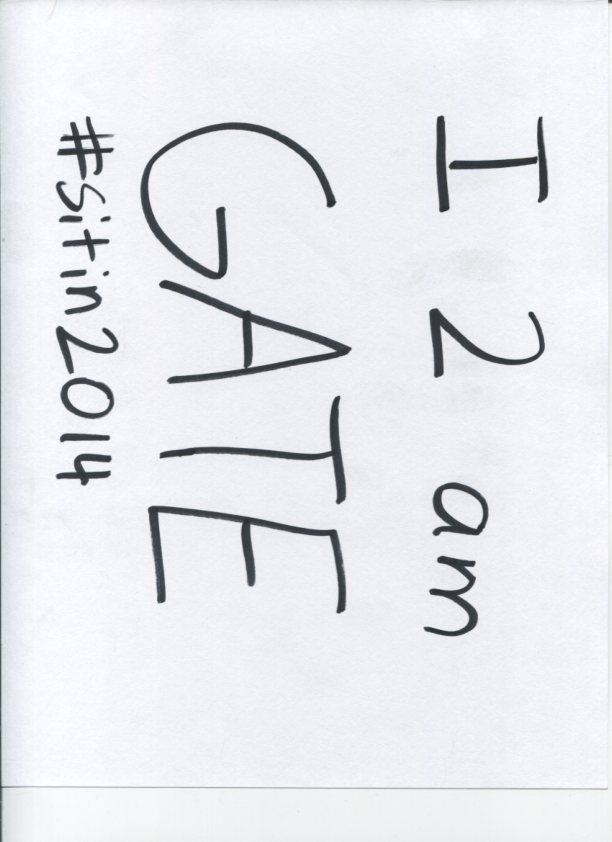 I 2 am
GATE
#Sitin2014